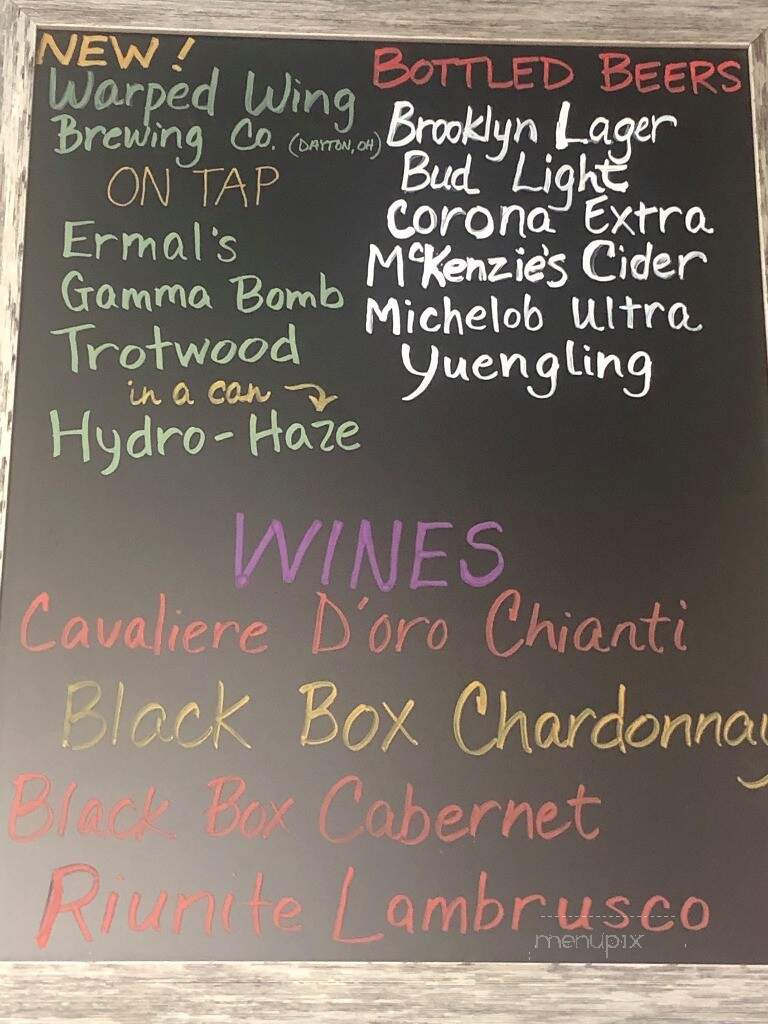 NEW!
Warped Wing
Brewing Co. (DAYTON, OH)
ON TAP
Ermal's
Gamma Bomb
Trotwood
in a can
Hydro-Haze
BOTTLED BEERS
Brooklyn Lager
Bud Light
Corona Extra
McKenzie's Cider
Michelob Ultra
Yuengling
WINES
Cavaliere D'oro Chianti
Black Box Chardonnay
Black Box Cabernet
Riunite Lambrusco
menupix